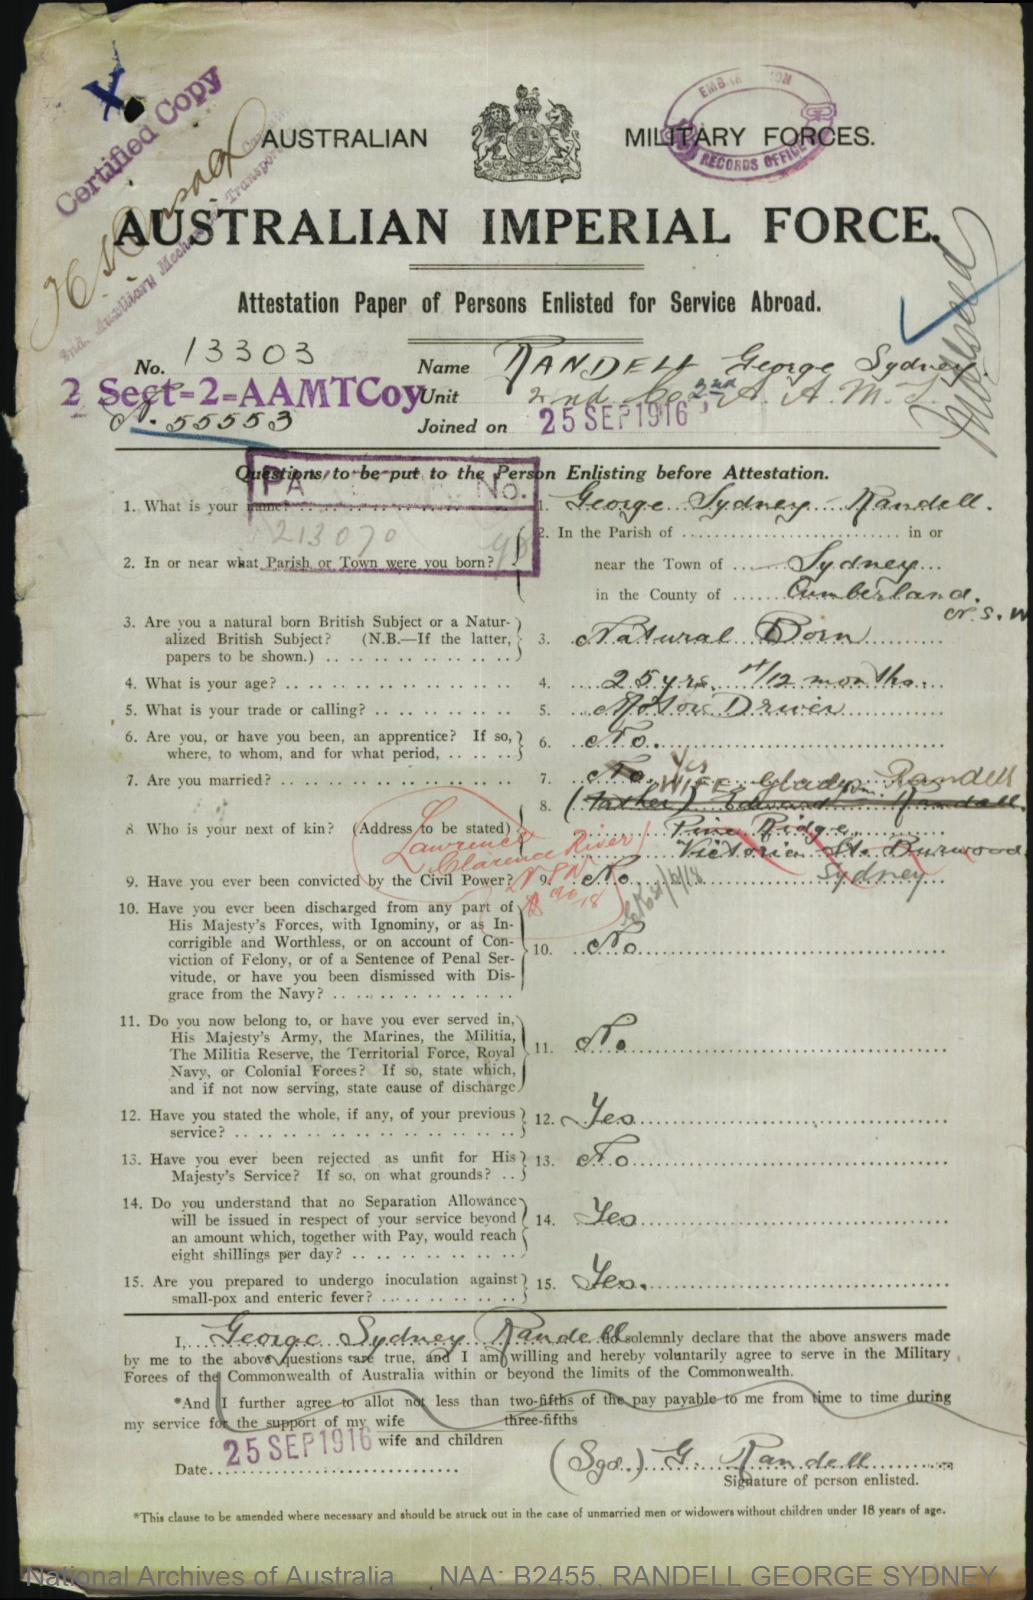 X
Certified Copy
EMBARKATION
RECORDS OFFICE
AUSTRALIAN MILITARY FORCES.
AUSTRALIAN IMPERIAL FORCE.
Attestation Paper of Persons Enlisted for Service Abroad.
No. 13303 Name RANDELL George Sydney
2 Sect=2=AAMTCoy Unit 2nd Co 2nd A. A. M. T.
N. 55553 Joined on 25 SEP 1916
Questions to be put to the Person Enlisting before Attestation.
PA No.
213070
1. What is your name? 1. George Sydney Randell.
2. In the Parish of in or
2. In or near what Parish or Town were you born? near the Town of Sydney
in the County of Cumberland.
N.S.W
3. Are you a natural born British Subject or a Natur-
alized British Subject? (N.B.—If the latter, 3. Natural Born
papers to be shown.)
4. What is your age? 4. 25 yrs. 4/12 months.
5. What is your trade or calling? 5. Motor Driver
6. Are you, or have you been, an apprentice? If so,
where, to whom, and for what period, 6. No.
Yes
7. Are you married? 7. No. WIFE Gladys Randell
8. (Father) Edward Randell
8 Who is your next of kin? (Address to be stated) Pine Ridge
Victoria St. Burwood
Sydney
Lawrence
Clarence River
NSW
9. Have you ever been convicted by the Civil Power? 9. No
10. Have you ever been discharged from any part of
His Majesty's Forces, with Ignominy, or as In-
corrigible and Worthless, or on account of Con-
viction of Felony, or of a Sentence of Penal Ser- 10. No
vitude, or have you been dismissed with Dis-
grace from the Navy?
11. Do you now belong to, or have you ever served in,
His Majesty's Army, the Marines, the Militia,
The Militia Reserve, the Territorial Force, Royal 11. No
Navy, or Colonial Forces? If so, state which,
and if not now serving, state cause of discharge
12. Have you stated the whole, if any, of your previous 12. Yes
service?
13. Have you ever been rejected as unfit for His 13. No
Majesty's Service? If so, on what grounds?
14. Do you understand that no Separation Allowance
will be issued in respect of your service beyond 14. Yes
an amount which, together with Pay, would reach
eight shillings per day?
15. Are you prepared to undergo inoculation against 15. Yes.
small-pox and enteric fever?
I, George Sydney Randell do solemnly declare that the above answers made
by me to the above questions are true, and I am willing and hereby voluntarily agree to serve in the Military
Forces of the Commonwealth of Australia within or beyond the limits of the Commonwealth.
*And I further agree to allot not less than two-fifths of the pay payable to me from time to time during
my service for the support of my wife three-fifths
wife and children
25 SEP 1916
Date (Sgd.) G. Randell
Signature of person enlisted.
*This clause to be amended where necessary and should be struck out in the case of unmarried men or widowers without children under 18 years of age.
National Archives of Australia NAA: B2455, RANDELL GEORGE SYDNEY